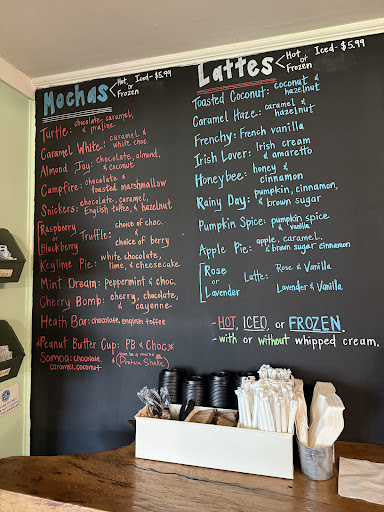 Mochas
Hot, Iced - $5.99
or
Frozen
Turtle: chocolate, caramel, & praline
Caramel White: caramel & white choc.
Almond Joy: chocolate, almond, & coconut
Campfire: chocolate & toasted marshmallow
Snickers: chocolate, caramel, English toffee, & hazelnut
Raspberry or Blackberry Truffle: choice of choc. choice of berry
Keylime Pie: white chocolate, lime, & cheesecake
Mint Dream: peppermint & choc.
Cherry Bomb: cherry, chocolate, & cayenne
Heath Bar: chocolate, english toffee
*Peanut Butter Cup: PB & Choc*
Samoa: chocolate, caramel, coconut
(can be a mocha or Protein Shake)
Lattes
Hot, Iced - $5.99
or
Frozen
Toasted Coconut: coconut & hazelnut
Caramel Haze: caramel & hazelnut
Frenchy: French vanilla
Irish Lover: Irish cream & amaretto
Honeybee: honey & cinnamon
Rainy Day: pumpkin, cinnamon, & brown sugar
Pumpkin Spice: pumpkin spice & vanilla
Apple Pie: apple, caramel, & brown sugar cinnamon
Rose or Lavender Latte: Rose & Vanilla
Lavender & Vanilla
- HOT, ICED, or FROZEN.
- with or without whipped cream.